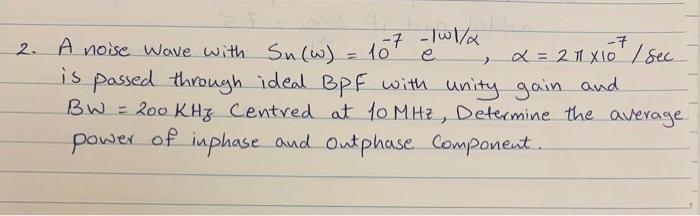 2. A noise wave with Sn(ω) = 10⁻⁷ e^(-|ω|/α), α = 2π×10⁻⁷ /sec
is passed through ideal BPF with unity gain and
BW = 200 KHz Centred at 10 MHz, Determine the average
power of inphase and outphase Component.